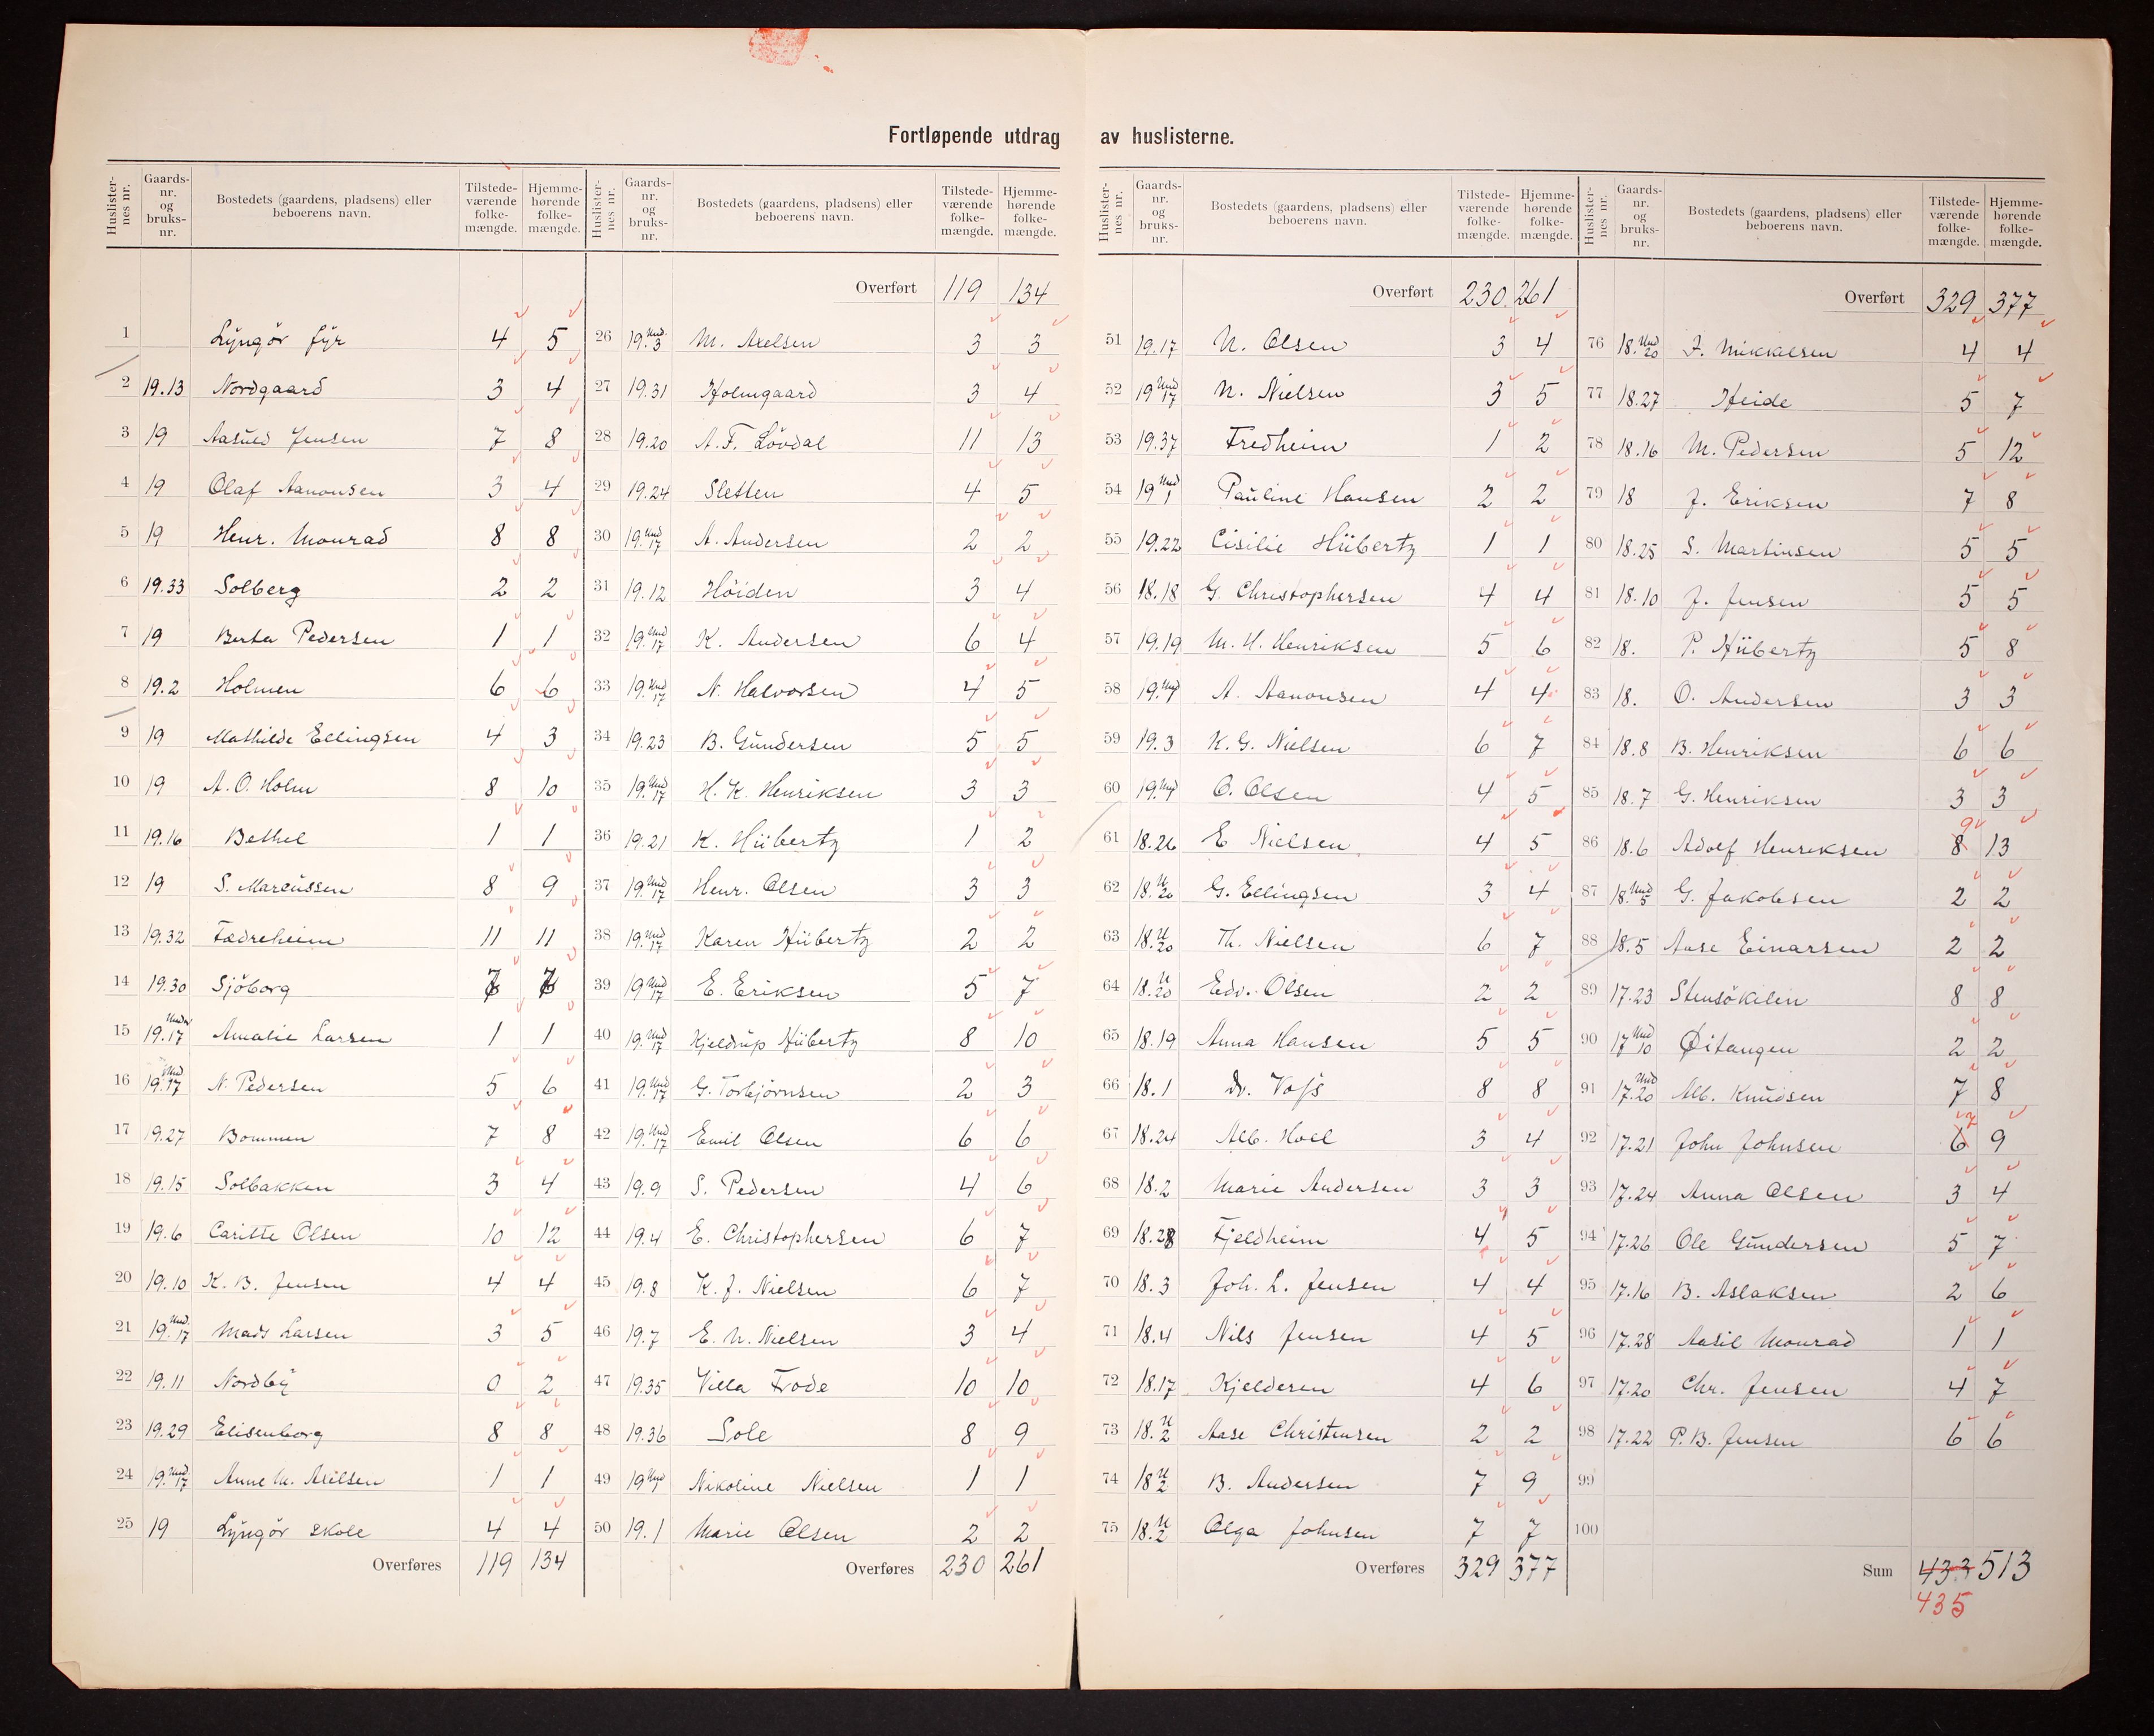 Fortløpende utdrag av huslisterne.
Huslister-nes nr. | Gaards-nr. og bruks-nr. | Bostedets (gaardens, pladsens) eller beboerens navn. | Tilstede-værende folke-mængde. | Hjemme-hørende folke-mængde.
1 Lyngör fyr 4 5
2 19.13 Nordgaard 3 4
3 19 Aasuld Jensen 7 8
4 19 Olaf Aanonsen 3 4
5 19 Henr. Monrad 8 8
6 19.33 Solberg 2 2
7 19 Berta Pedersen 1 1
8 19.2 Holmen 6 6
9 19 Mathilde Ellingsen 4 3
10 19 A. O. Holm 8 10
11 19.16 Bethel 1 1
12 19 S. Marcussen 8 9
13 19.32 Fædreheim 11 11
14 19.30 Sjöborg 7 7
15 19. Under 17 Amalie Larsen 1 1
16 19. Und 17 N. Pedersen 5 6
17 19.27 Bommen 7 8
18 19.15 Solbakken 3 4
19 19.6 Caritte Olsen 10 12
20 19.10 K. B. Jensen 4 4
21 19. Und. 17 Mads Larsen 3 5
22 19.11 Nordby 0 2
23 19.29 Elisenborg 8 8
24 19. Und. 17 Anne M. Axelsen 1 1
25 19 Lyngör skole 4 4
Overføres 119 134
Huslister-nes nr. | Gaards-nr. og bruks-nr. | Bostedets (gaardens, pladsens) eller beboerens navn. | Tilstede-værende folke-mængde. | Hjemme-hørende folke-mængde.
Overført 119 134
26 19. Und. 3 M. Axelsen 3 3
27 19.31 Holmgaard 3 4
28 19.20 A. F. Lövdal 11 13
29 19.24 Sletten 4 5
30 19. Und 17 A. Andersen 2 2
31 19.12 Höiden 3 4
32 19. Und 17 K. Andersen 6 4
33 19. Und 17 N. Halvorsen 4 5
34 19.23 B. Gundersen 5 5
35 19. Und 17 H. K. Henriksen 3 3
36 19.21 K. Hübertz 1 2
37 19. Und 17 Henr. Olsen 3 3
38 19. Und 17 Karen Hübertz 2 2
39 19 Und 17 E. Eriksen 5 7
40 19. Und 17 Kjeldrup Hübertz 8 10
41 19. Und 17 G. Torbjörnsen 2 3
42 19. Und 17 Emil Olsen 6 6
43 19.9 S. Pedersen 4 6
44 19.4 E. Christophersen 6 7
45 19.8 K. J. Nielsen 6 7
46 19.7 E. N. Nielsen 3 4
47 19.35 Villa Frode 10 10
48 19.36 Sole 8 9
49 19 Und 1 Nikoline Nielsen 1 1
50 19.1 Marie Olsen 2 2
Overføres 230 261
Huslister-nes nr. | Gaards-nr. og bruks-nr. | Bostedets (gaardens, pladsens) eller beboerens navn. | Tilstede-værende folke-mængde. | Hjemme-hørende folke-mængde.
Overført 230 261
51 19.17 N. Olsen 3 4
52 19 Und 17 N. Nielsen 3 5
53 19.37 Fredheim 1 2
54 19 Und 1 Pauline Hansen 2 2
55 19.22 Cisilie Hübertz 1 1
56 18.18 G. Christophersen 4 4
57 19.19 M. H. Henriksen 5 6
58 19. Und A. Aanonsen 4 4
59 19.3 K. G. Nielsen 6 7
60 19. Und O. Olsen 4 5
61 18.26 E Nielsen 4 5
62 18. U 20 G. Ellingsen 3 4
63 18. U 20 Th. Nielsen 6 7
64 18. U 20 Edv. Olsen 2 2
65 18.19 Anna Hansen 5 5
66 18.1 Dr. Voss 8 8
67 18.24 Alb. Holl 3 4
68 18.2 Marie Andersen 3 3
69 18.28 Fjeldheim 4 5
70 18.3 Joh. L. Jensen 4 4
71 18.4 Nils Jensen 4 5
72 18.17 Kjeldesen 4 6
73 18. U 2 Aase Christensen 2 2
74 18 U 2 B. Andersen 7 9
75 18. U 2 Olga Johnsen 7 7
Overføres 329 377
Huslister-nes nr. | Gaards-nr. og bruks-nr. | Bostedets (gaardens, pladsens) eller beboerens navn. | Tilstede-værende folke-mængde. | Hjemme-hørende folke-mængde.
Overført 329 377
76 18. Und 20 J. Mikkelsen 4 4
77 18.27 Heide 5 7
78 18.16 M. Pedersen 5 12
79 18 J. Eriksen 7 8
80 18.25 S. Martinsen 5 5
81 18.10 J. Jensen 5 5
82 18. P. Hübertz 5 8
83 18. O. Andersen 3 3
84 18.8 B. Henriksen 6 6
85 18.7 G. Henriksen 3 3
86 18.6 Adolf Henriksen 8 9 13
87 18. Und 5 G. Jakobsen 2 2
88 18.5 Aase Einarsen 2 2
89 17.23 Stensökilen 8 8
90 17 Und 10 Øitangen 2 2
91 17. Und 20 Alb. Knudsen 7 8
92 17.21 John Johnsen 6 7 9
93 17.24 Anna Olsen 3 4
94 17.26 Ole Gundersen 5 7
95 17.16 B. Aslaksen 2 6
96 17.28 Aasil Monrad 1 1
97 17.20 Chr. Jensen 4 7
98 17.22 P. B. Jensen 6 6
99
100
Sum 433 513
435